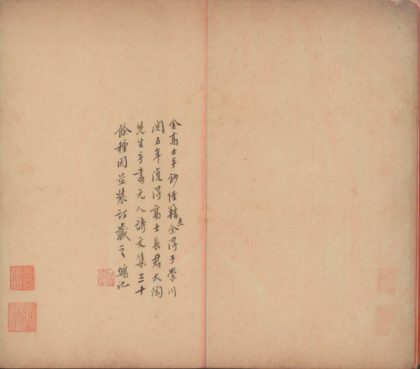 金高士手鈔佳籍余得于學川
閱五年復得高士長君天陶
先生手書元人詩文集三十
餘種因並裝訂藏之 記